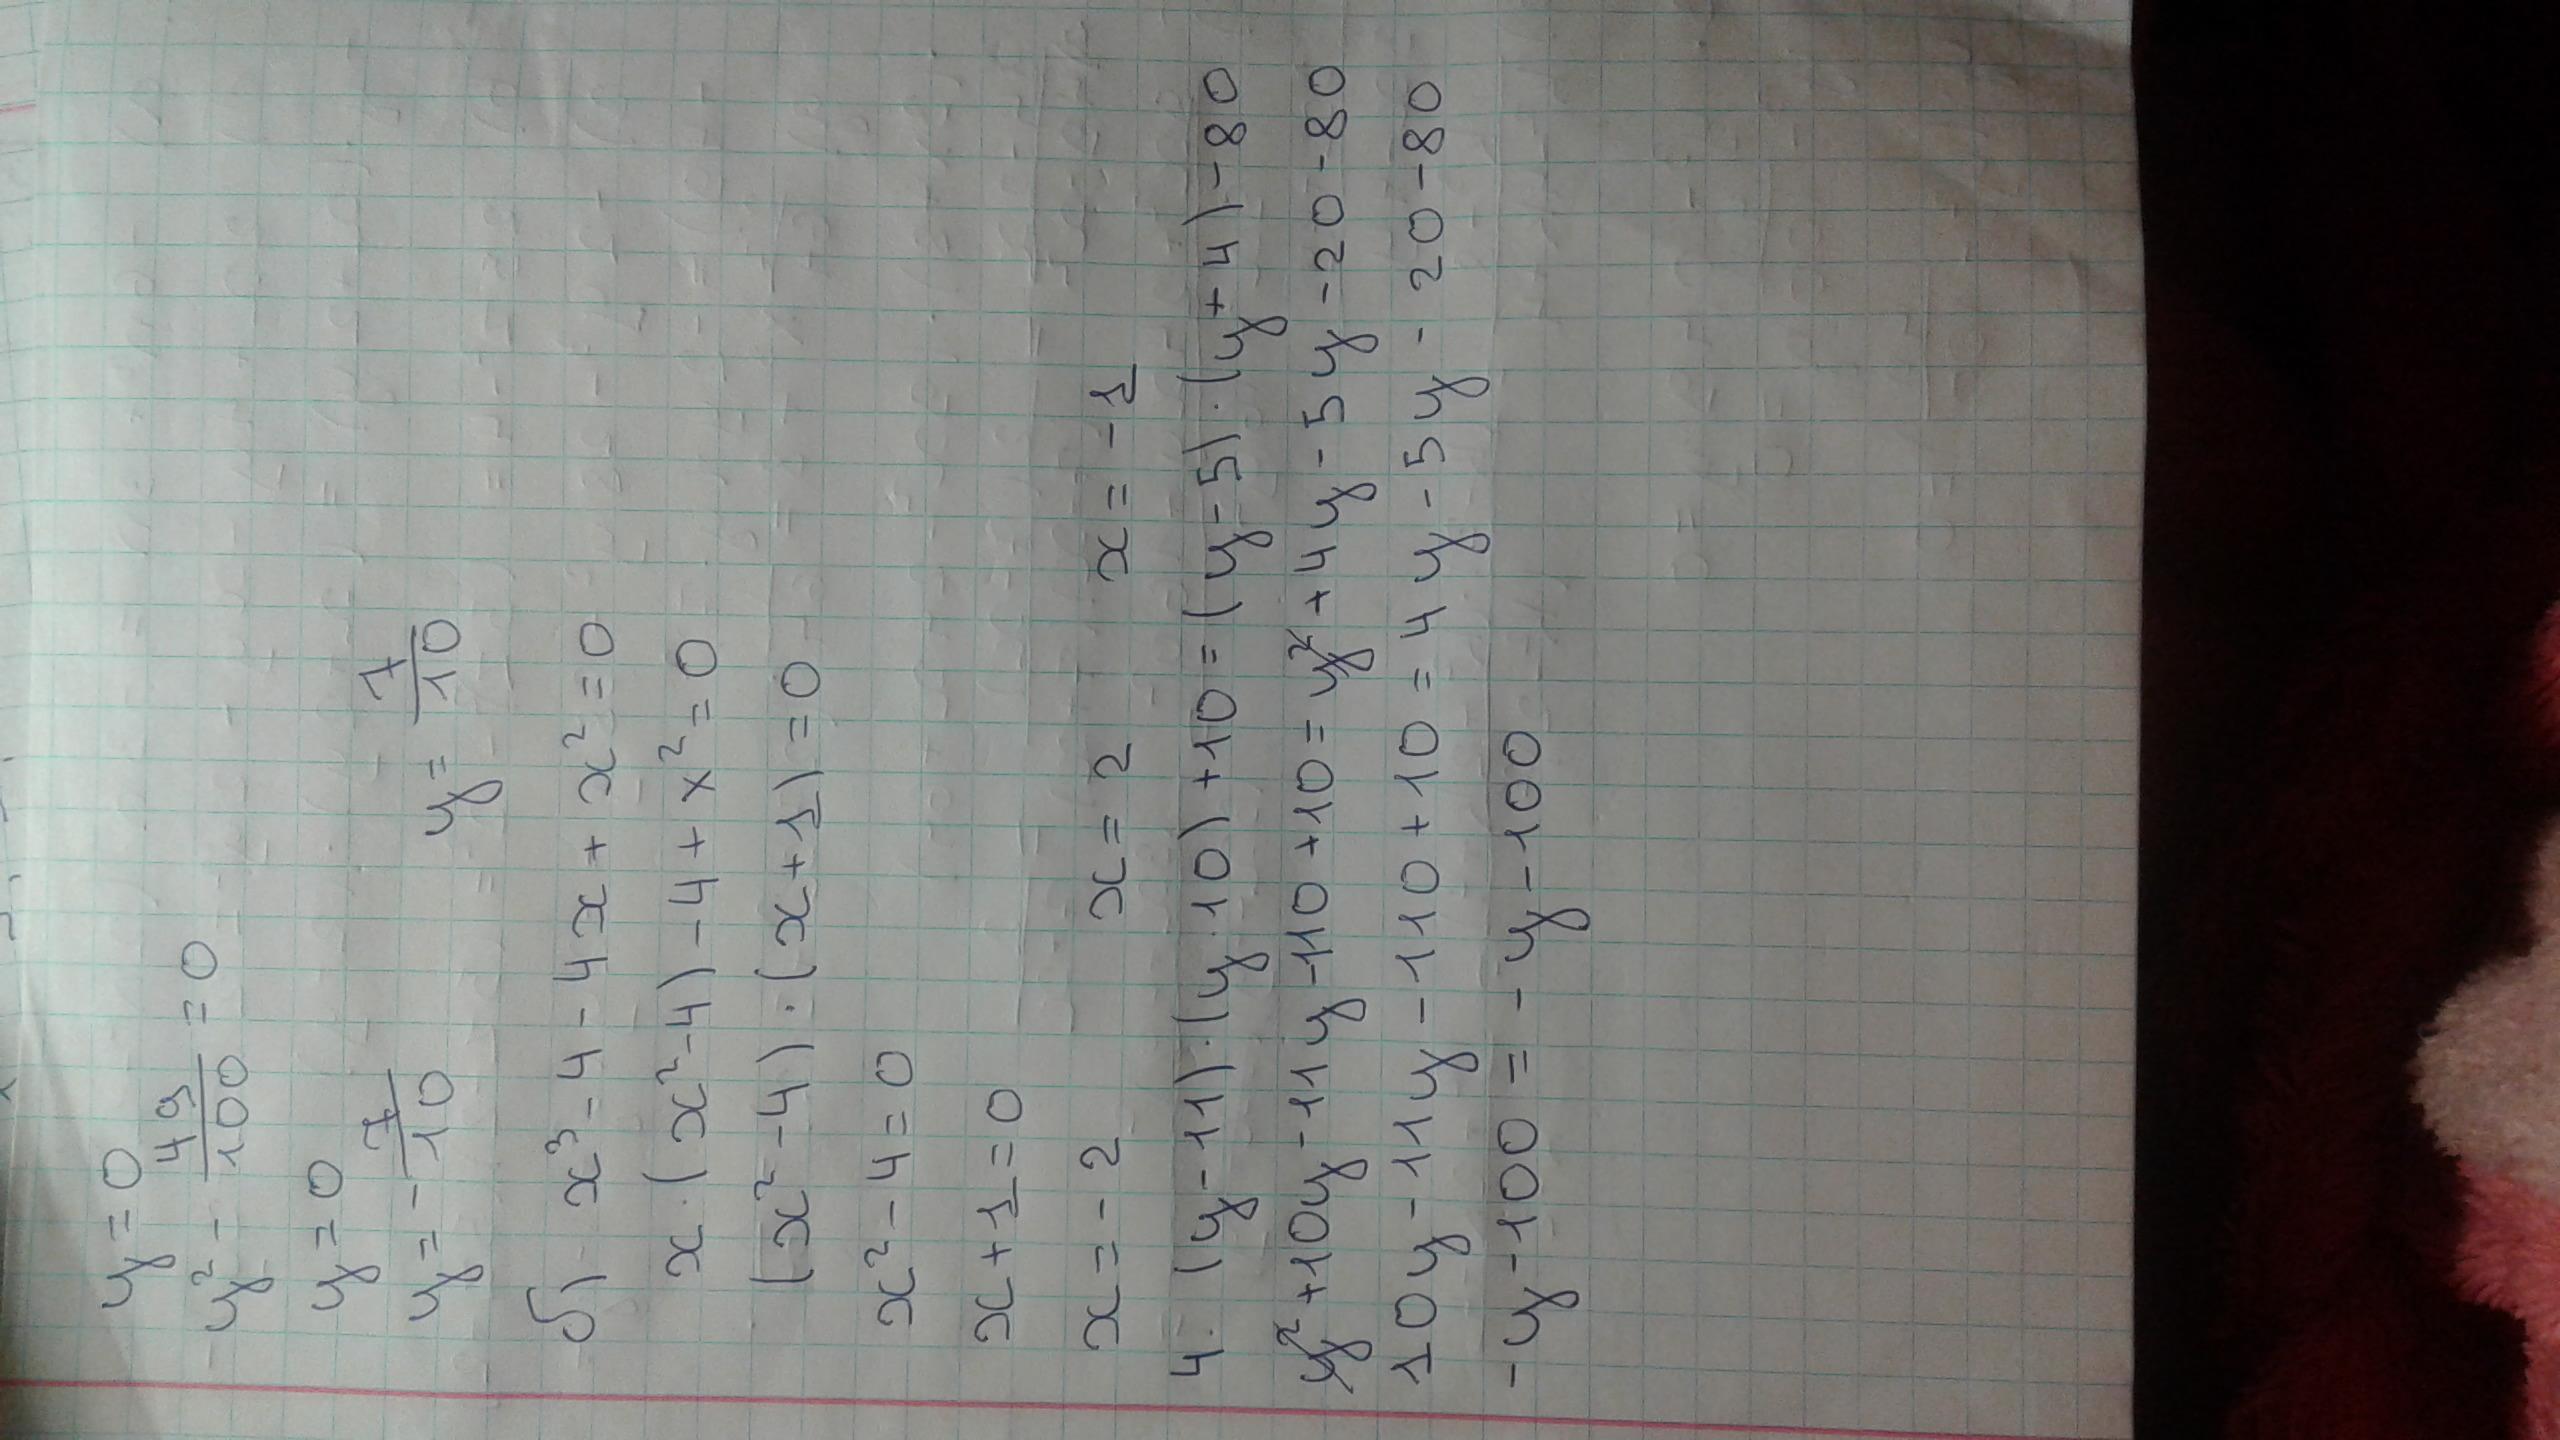 y = 0
y² - 49/100 = 0
y = 0
y = - 7/10 y = 7/10
б) x³ - 4 - 4x + x² = 0
x · (x² - 4) - 4 + x² = 0
(x² - 4) · (x + 1) = 0
x² - 4 = 0
x + 1 = 0
x = - 2 x = 2 x = - 1
4. (y - 11) · (y · 10) + 10 = (y - 5) · (y + 4) - 80
y² + 10y - 11y - 110 + 10 = y² + 4y - 5y - 20 - 80
10y - 11y - 110 + 10 = 4y - 5y - 20 - 80
- y - 100 = - y - 100